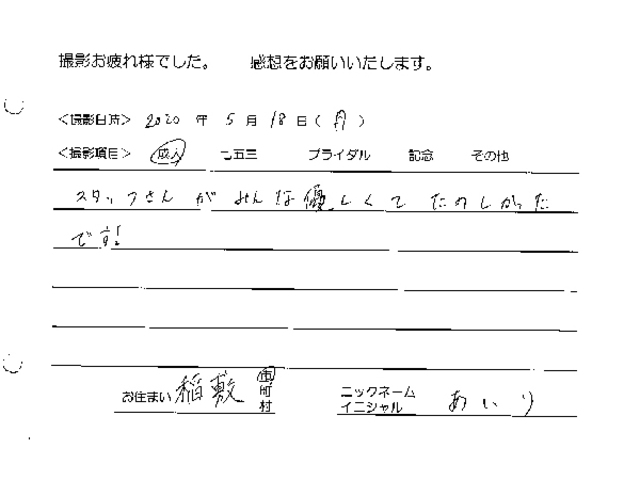 撮影お疲れ様でした。 感想をお願いいたします。
<撮影日時> 2020 年 5 月 18 日 ( 月 )
<撮影項目> 成人 七五三 ブライダル 記念 その他
スタッフさんがみんな優しくてたのしかった
です!
お住まい 稲敷 市 町 村
ニックネーム イニシャル あいり